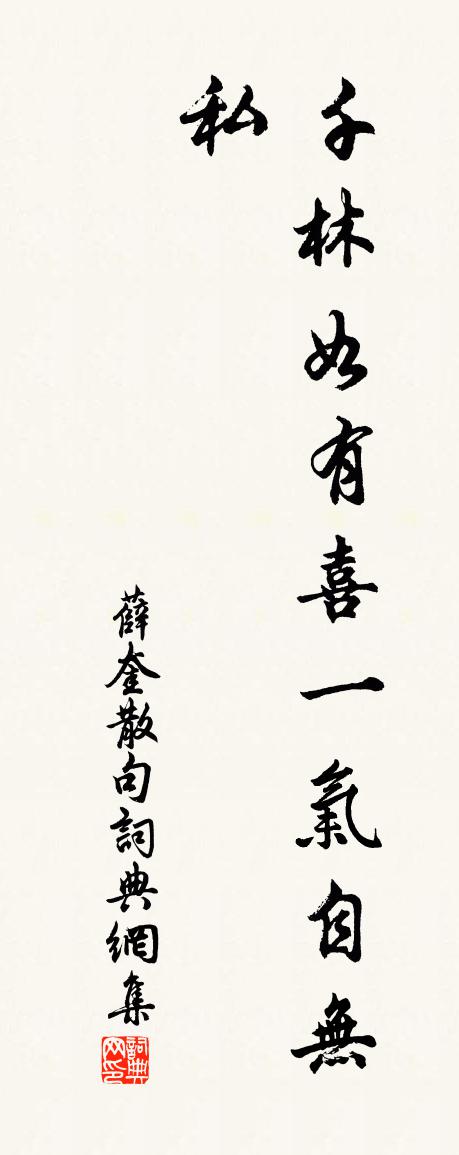 千林如有喜一氣自無
私
薛奎散句詞典網集
詞典
网印